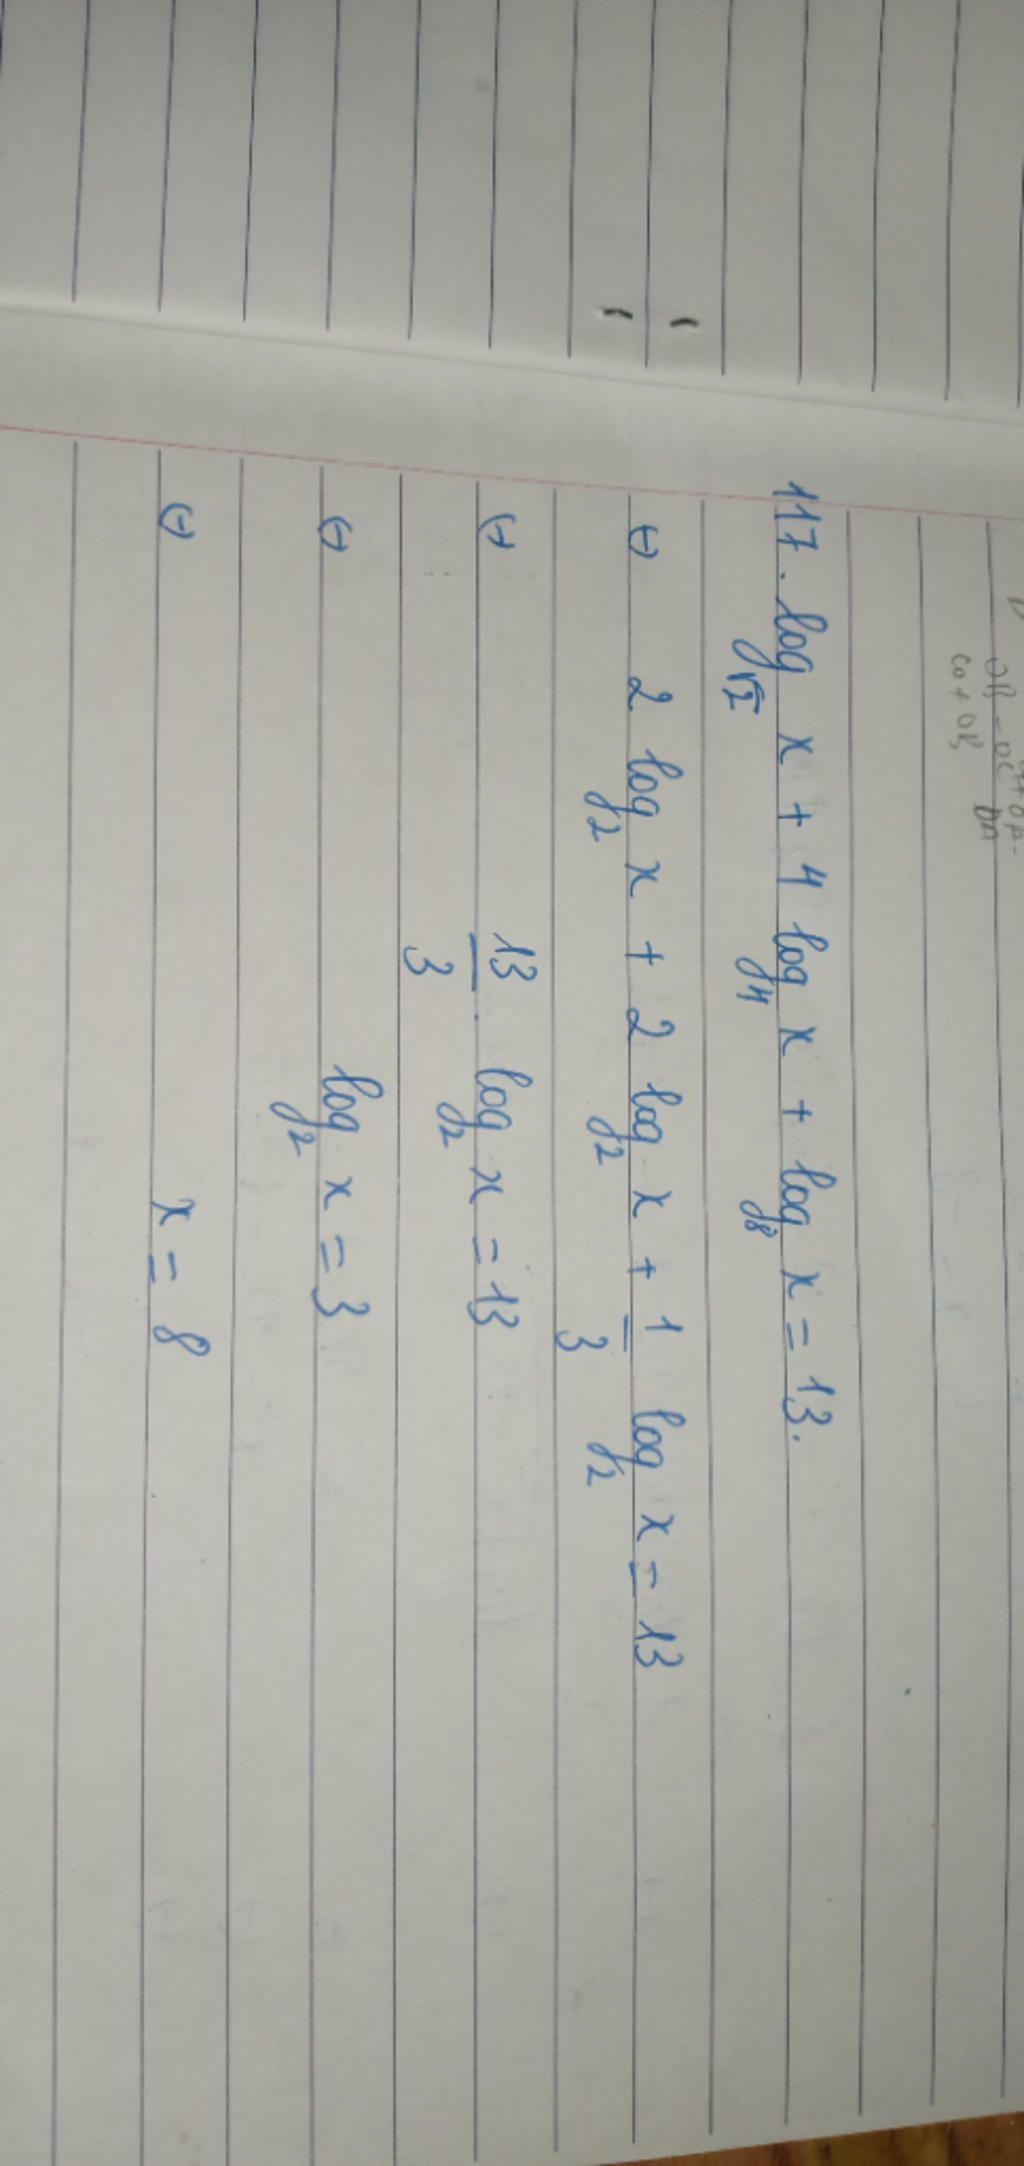 117. log_√2 x + 4 log_4 x + log_8 x = 13.
⇔ 2 log_2 x + 2 log_2 x + 1/3 log_2 x = 13
⇔ 13/3 . log_2 x = 13
⇔ log_2 x = 3
⇔ x = 8